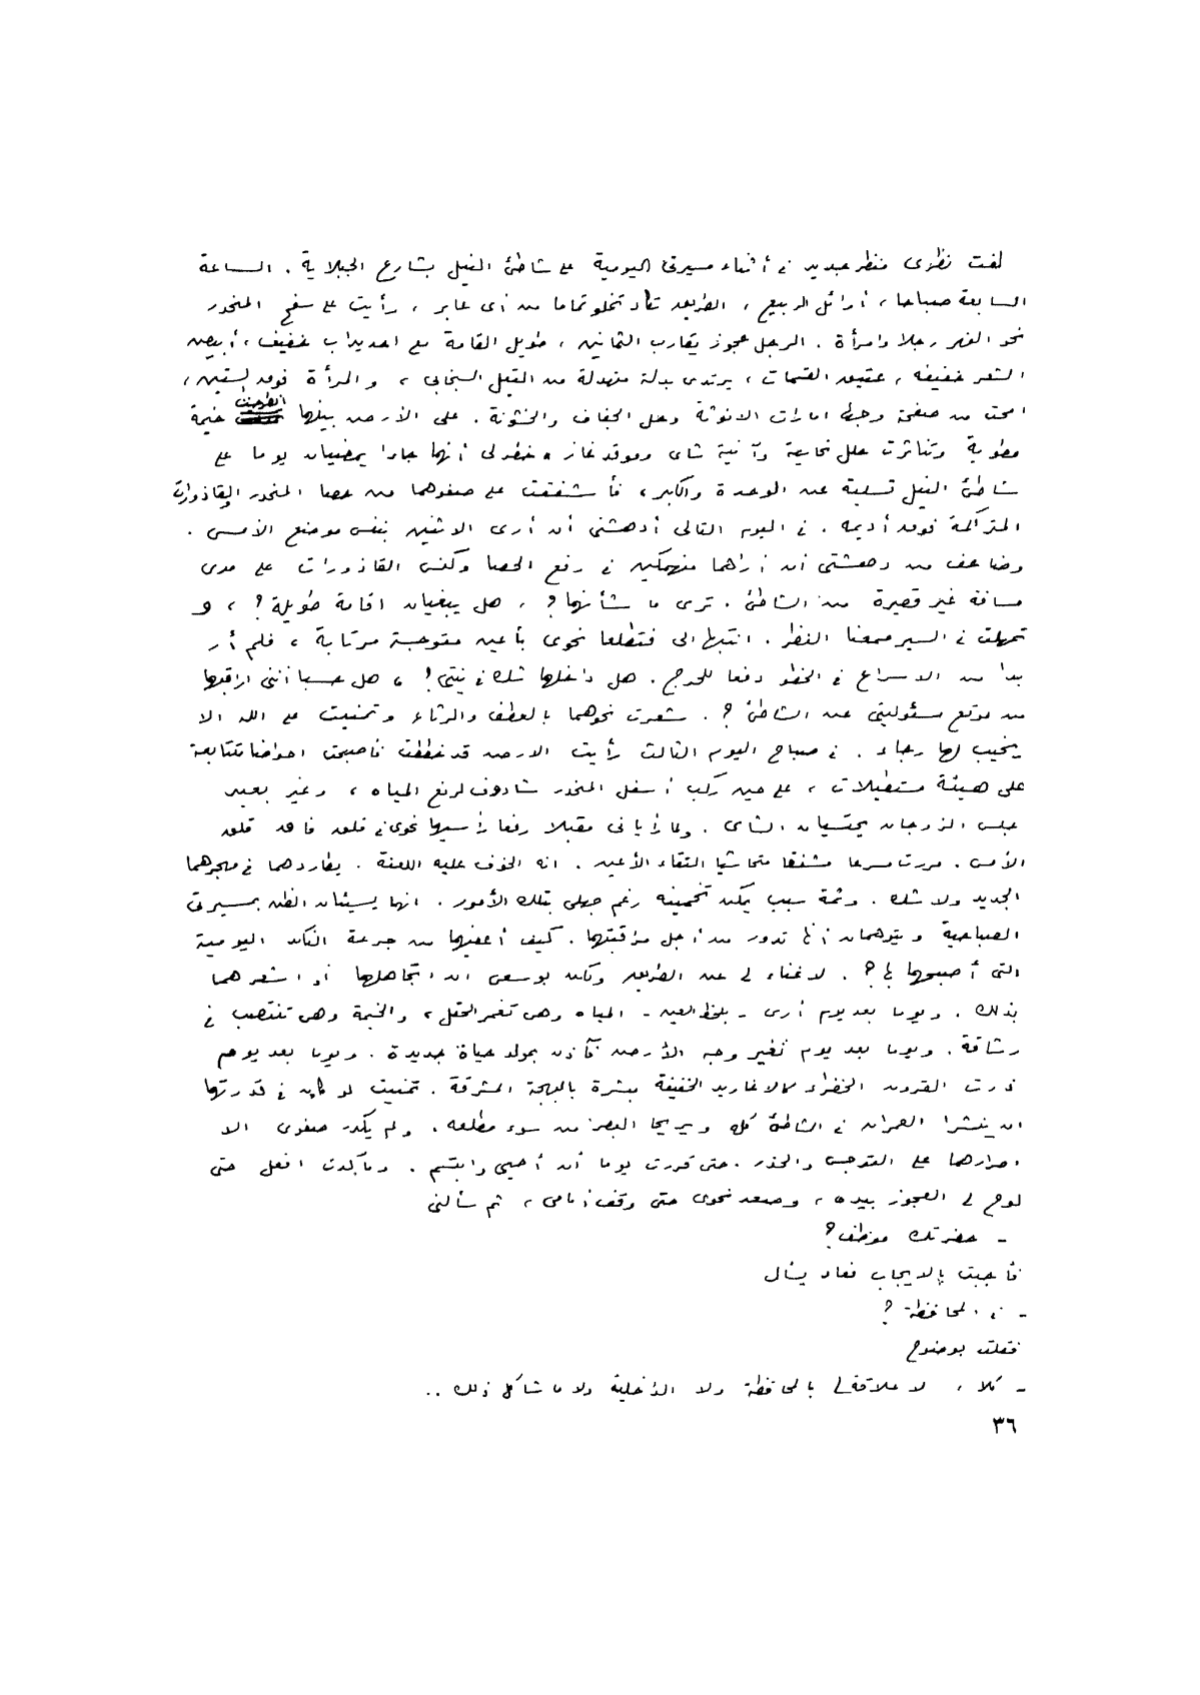 لفت نظرى منظر جديد فى أثناء مسيرتى اليومية على شاطئ النيل بشارع الجبلاية . الساعة
السابعة صباحا ، أوائل الربيع ، الطريق تكاد تخلو تماما من أى عابر ، رأيت على سفح المنحدر
نحو النهر رجلا وامرأة . الرجل عجوز يقارب الثمانين ، طويل القامة مع احديداب خفيف ، أبيض
الشعر خفيفه ، عميق القسمات ، يرتدى بدلة متهدلة من التيل السنجابى ، والمرأة فوق الستين ،
امحت من صفحة وجهها امارات الانوثة وحل الجفاف والخشونة . على الأرض بينهما انطرحت خيمة
مطوية وتناثرت حلل نحاسية وآنية شاى وموقد غاز . خطر لى أنهما جاءا يمضيان يوما على
شاطئ النيل تسلية عن الوحدة والكبر ، فأشفقت على صفوهما من حصا المنحدر والقاذورات
المتراكمة فوق أديمه . فى اليوم التالى أدهشنى أن أرى الاثنين بنفس موضع الأمس .
وضاعف من دهشتى أن أراهما منهمكين فى رفع الحصا وكنس القاذورات على مدى
مسافة غير قصيرة من الشاطئ . ترى ما شأنهما ؟ ، هل يبغيان اقامة طويلة ؟ ، و
تمهلت فى السير ممعنا النظر . انتبها الى فتطلعا نحوى بأعين متوجسة مرتابة ، فلم أر
بدا من الاسراع فى الخطو دفعا للحرج . هل داخلهما شك فى نيتى ؟ ، هل حسبا أننى اراقبهما
من موقع مسئوليتى عن الشاطئ ؟ . شعرت نحوهما بالعطف والرثاء وتمنيت على الله الا
يخيب لهما رجاء . فى صباح اليوم الثالث رأيت الارض قد خططت فأصبحت احواضا متتابعة
على هيئة مستطيلات ، على حين ركب أسفل المنحدر شادوف لرفع المياه ، وغير بعيد
جلس الزوجان يحتسيان الشاى . ولما رأيانى مقبلا رفعا رأسيهما نحوى فى قلق فاق قلق
الأمس . مررت مسرعا مشفقا متحاشيا التقاء الأعين . انه الخوف عليه اللعنة . يطاردهما فى مهجرهما
الجديد ولا شك . وثمة سبب يمكن تخمينه رغم جهلى بتلك الأمور . انهما يسيئان الظن بمسيرتى
الصباحية ويتوهمان أنها تدور من أجل مراقبتهما . كيف أعفيهما من جرعة النكد اليومية
التى أصبحهما بها ؟ . لا غناء لى عن الطريق وكان بوسعى ان اتجاهلهما أو اشعرهما
بذلك . ويوما بعد يوم أرى - بلحظ العين - المياه وهى تغمر الحقل ، والخيمة وهى تنتصب فى
رشاقة . ويوما بعد يوم تغير وجه الأرض فآذن بمولد حياة جديدة . ويوما بعد يوم
قرت القرون الخضراء كالاغاريد الخفيفة مبشرة بالبهجة المشرقة . تمنيت لو كان فى قدرتهما
ان ينشرا العمران فى الشاطئ كله ويريحا البصر من سوء مطلعه . ولم يكدر صفوى الا
اصرارهما على التوجس والحذر . حتى قررت يوما أن أحيى وابتسم . وما كدت افعل حتى
لوح لى العجوز بيده ، وصعد نحوى حتى وقف أمامى ، ثم سألنى
- حضرتك موظف ؟
فأجبت بالايجاب فعاد يسأل
- فى المحافظة ؟
فقلت بوضوح
- كلا ، لا علاقة لى بالمحافظة ولا الداخلية ولا ما شاكل ذلك ..
٣٦